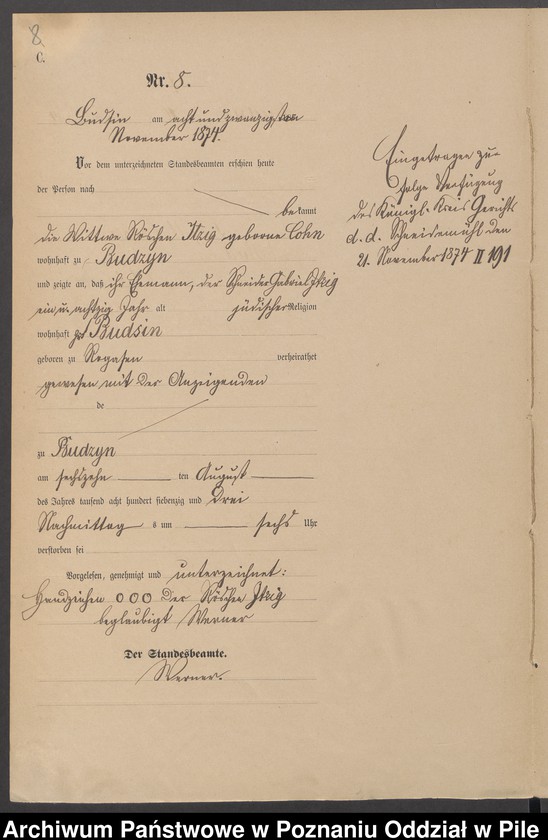 8
C.
Nr. 8.
Budsin am acht und zwanzigsten
November 1874.
Vor dem unterzeichneten Standesbeamten erschien heute
der Person nach
bekannt
die Wittwe Röschen Itzig geborne Cohn
wohnhaft zu Budzyn
und zeigte an, daß ihr Ehemann, der Schneider Gabriel Itzig
ein u. achtzig Jahr alt jüdischer Religion
wohnhaft zu Budsin
geboren zu Rogasen verheirathet
gewesen mit der Anzeigenden
de
zu Budzyn
am sechszehn ten August
des Jahres tausend acht hundert siebenzig und drei
Nachmittag s um sechs Uhr
verstorben sei
Vorgelesen, genehmigt und unterzeichnet:
Handzeichen ooo der Röschen Itzig
beglaubigt Werner
Der Standesbeamte.
Werner.
Eingetragen zu-
folge Verfügung
des Königl. Kreis Gerichts
d. d. Schneidemühl den
21. November 1874 II 191
Archiwum Państwowe w Poznaniu Oddział w Pile